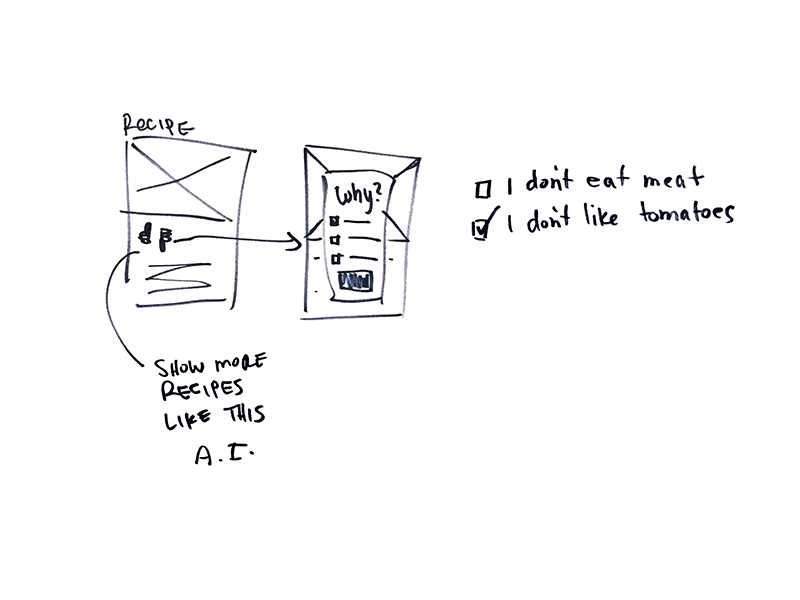 RECIPE
Why?
I don't eat meat
I don't like tomatoes
SHOW MORE
RECIPES
LIKE THIS
A.I.